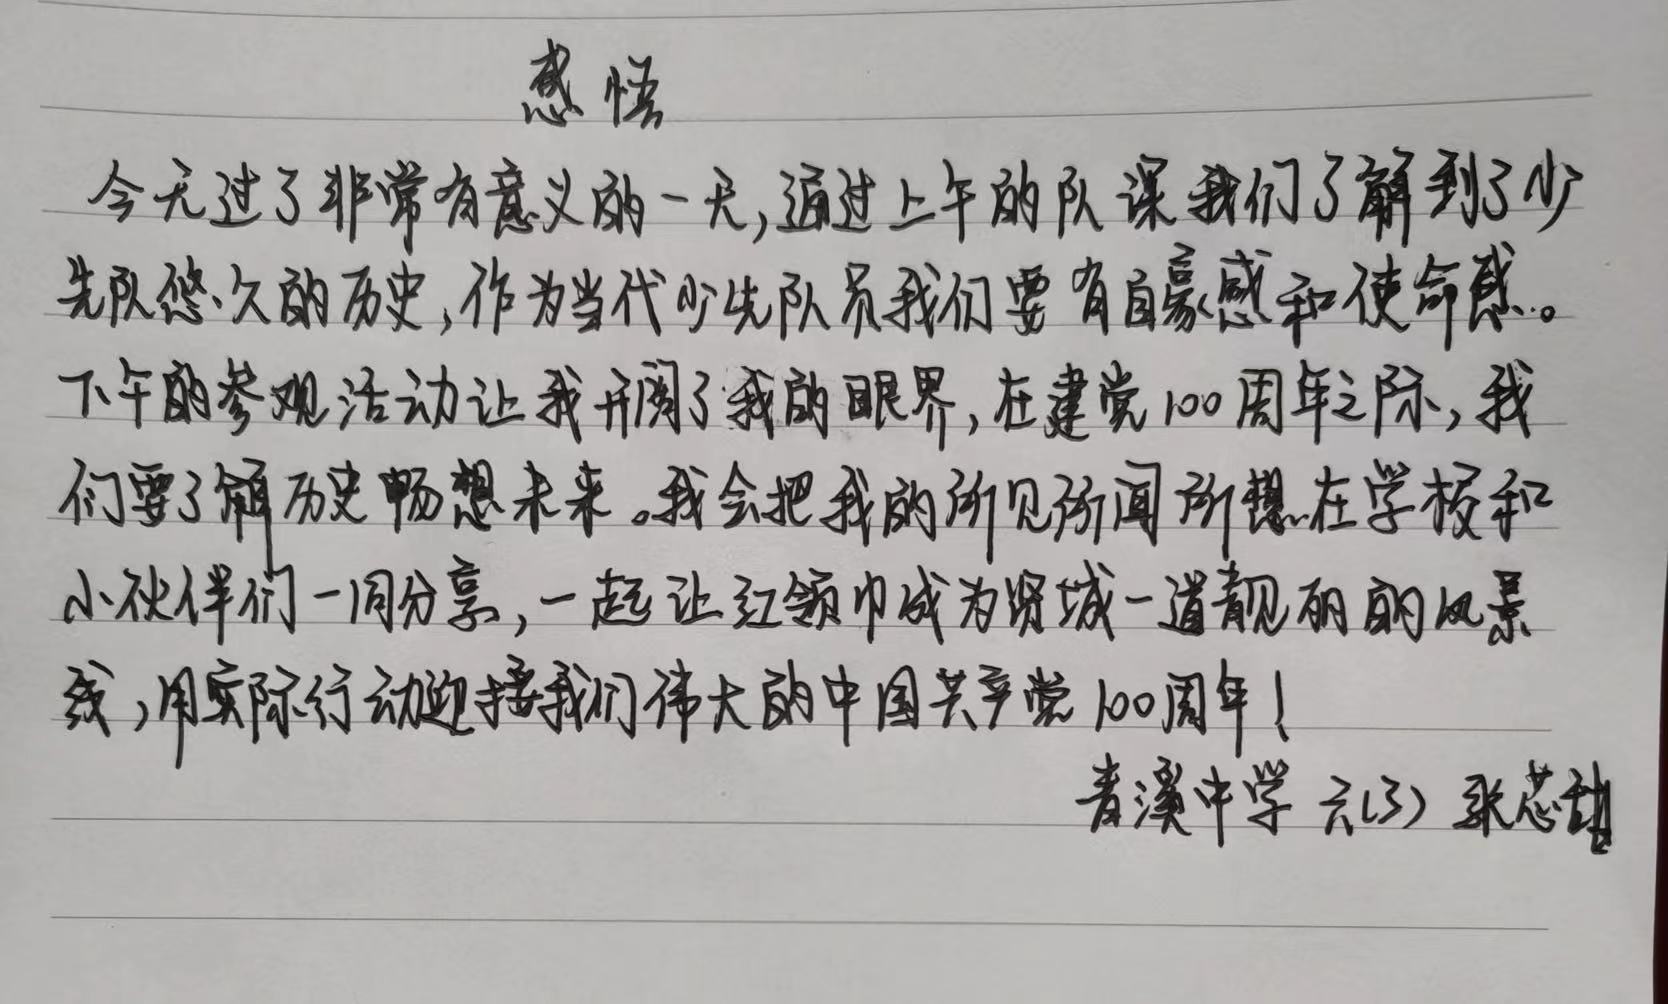 感悟
今天过了非常有意义的一天,通过上午的队课我们了解到了少
先队悠久的历史,作为当代少先队员我们要有自豪感和使命感。
下午的参观活动让我开阔了我的眼界,在建党100周年之际,我
们要了解历史畅想未来。我会把我的所见所闻所想在学校和
小伙伴们一同分享,一起让红领巾成为贤城一道靓丽的风景
线,用实际行动迎接我们伟大的中国共产党100周年!
青溪中学 六(3) 张芯甜